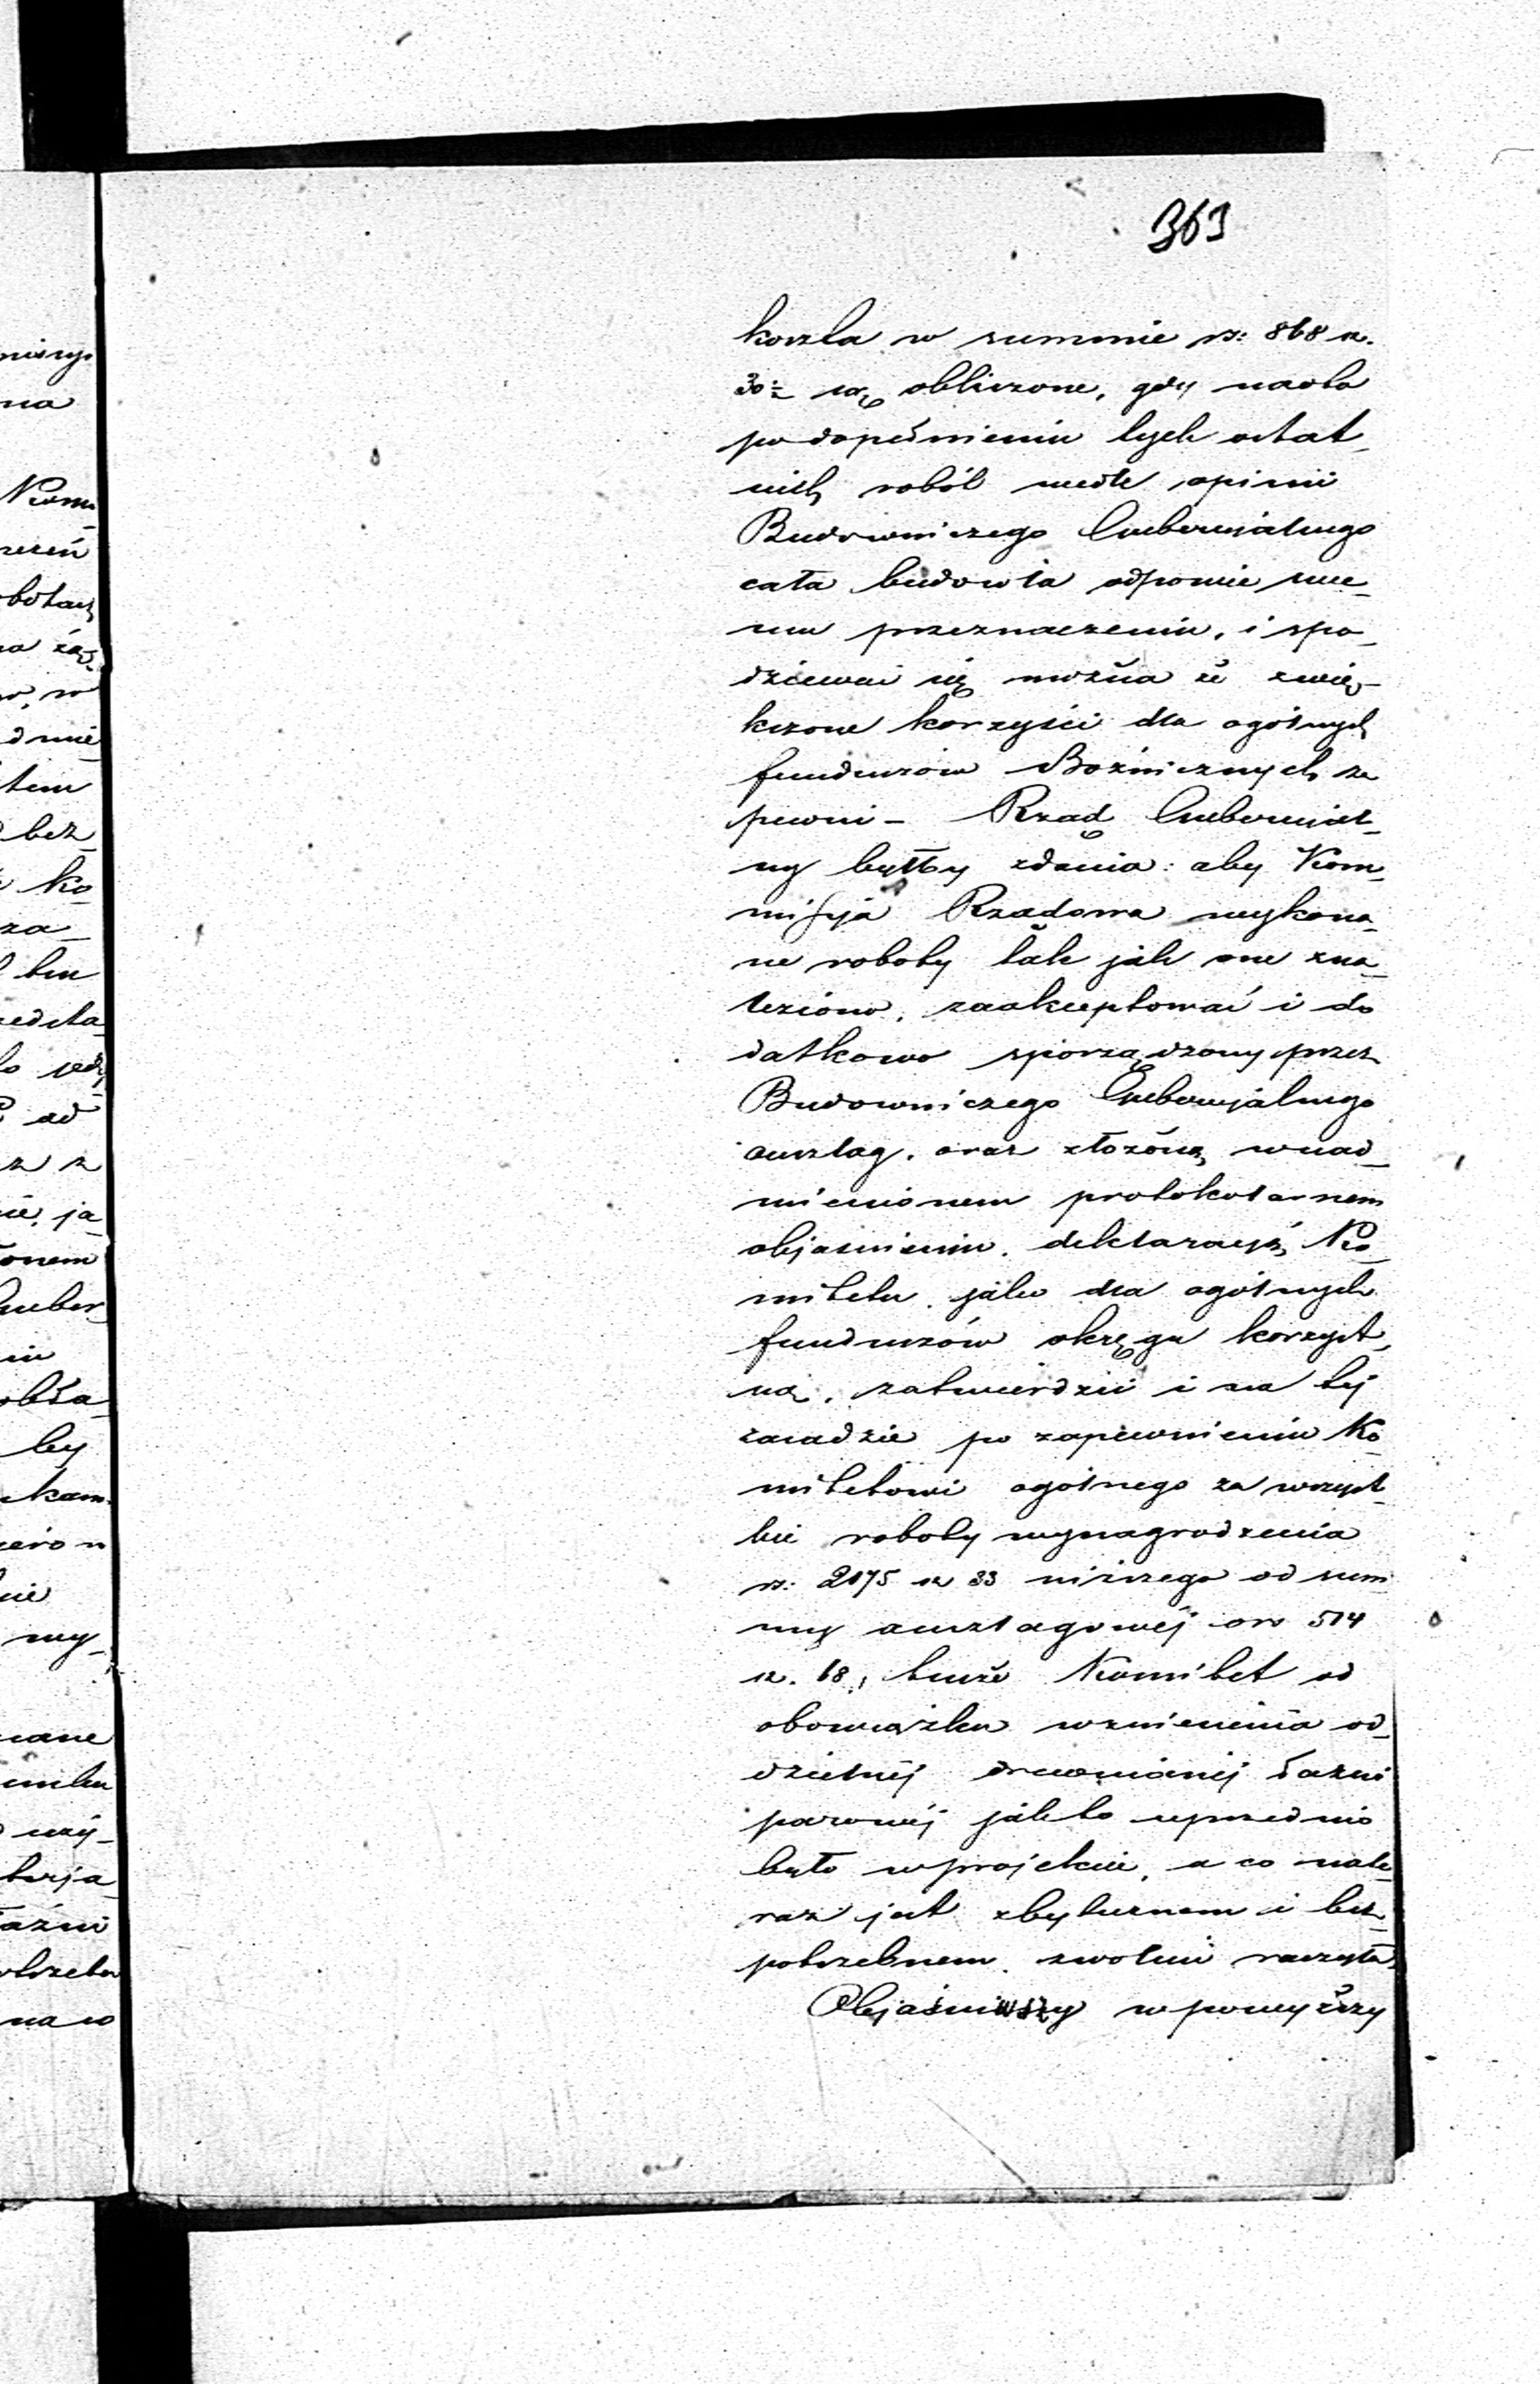 363
koszta w summie rs: 868 k.
30½ są obliczone, gdy nadto
po dopełnieniu tych ostat_
nich robót wedle opinii
Budowniczego Gubernialnego
cała budowla odpowie swe_
mu przeznaczeniu, i spo_
dziewać się można że zwię_
kszone korzyści dla ogólnych
funduszów Bożnicznych za
pewni – Rząd Gubernial_
ny byłby zdania: aby Kom_
missyja Rządowa wykona_
ne roboty tak jak one zna_
leziono, zaakceptować i do
datkowo sporządzony przez
Budowniczego Gubernjalnego
anszlag, oraz złożoną wnad_
mienionem protokolarnem
objaśnieniu, deklaracyą Ko_
mitetu, jako dla ogólnych
funduszów okręgu korzyst_
ną, zatwierdzić i na tej
zasadzie po zapewnieniu Ko
mitetowi ogólnego za wszyst_
kie roboty wynagrodzenia
rs: 2175 k 33 niższego od sum
my anszlagowéj o rs 514
k. 68, tenże Komitet od
obowiązku wzniesienia od_
dzielnéj drewnianéj łaźni
parowéj jak to uprzednio
było w projekcie, a co nate_
raz jest zbytecznem i bez_
potrzebnem, zwolnić raczyła.
Objaśniwszy w powyższy